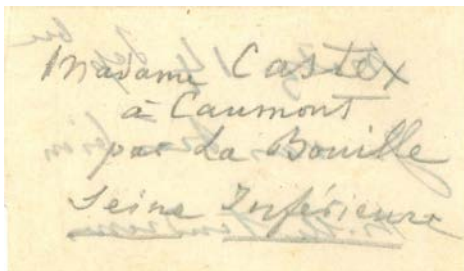 Madame Castex
à Caumont
par La Bouille
Seine Inférieure